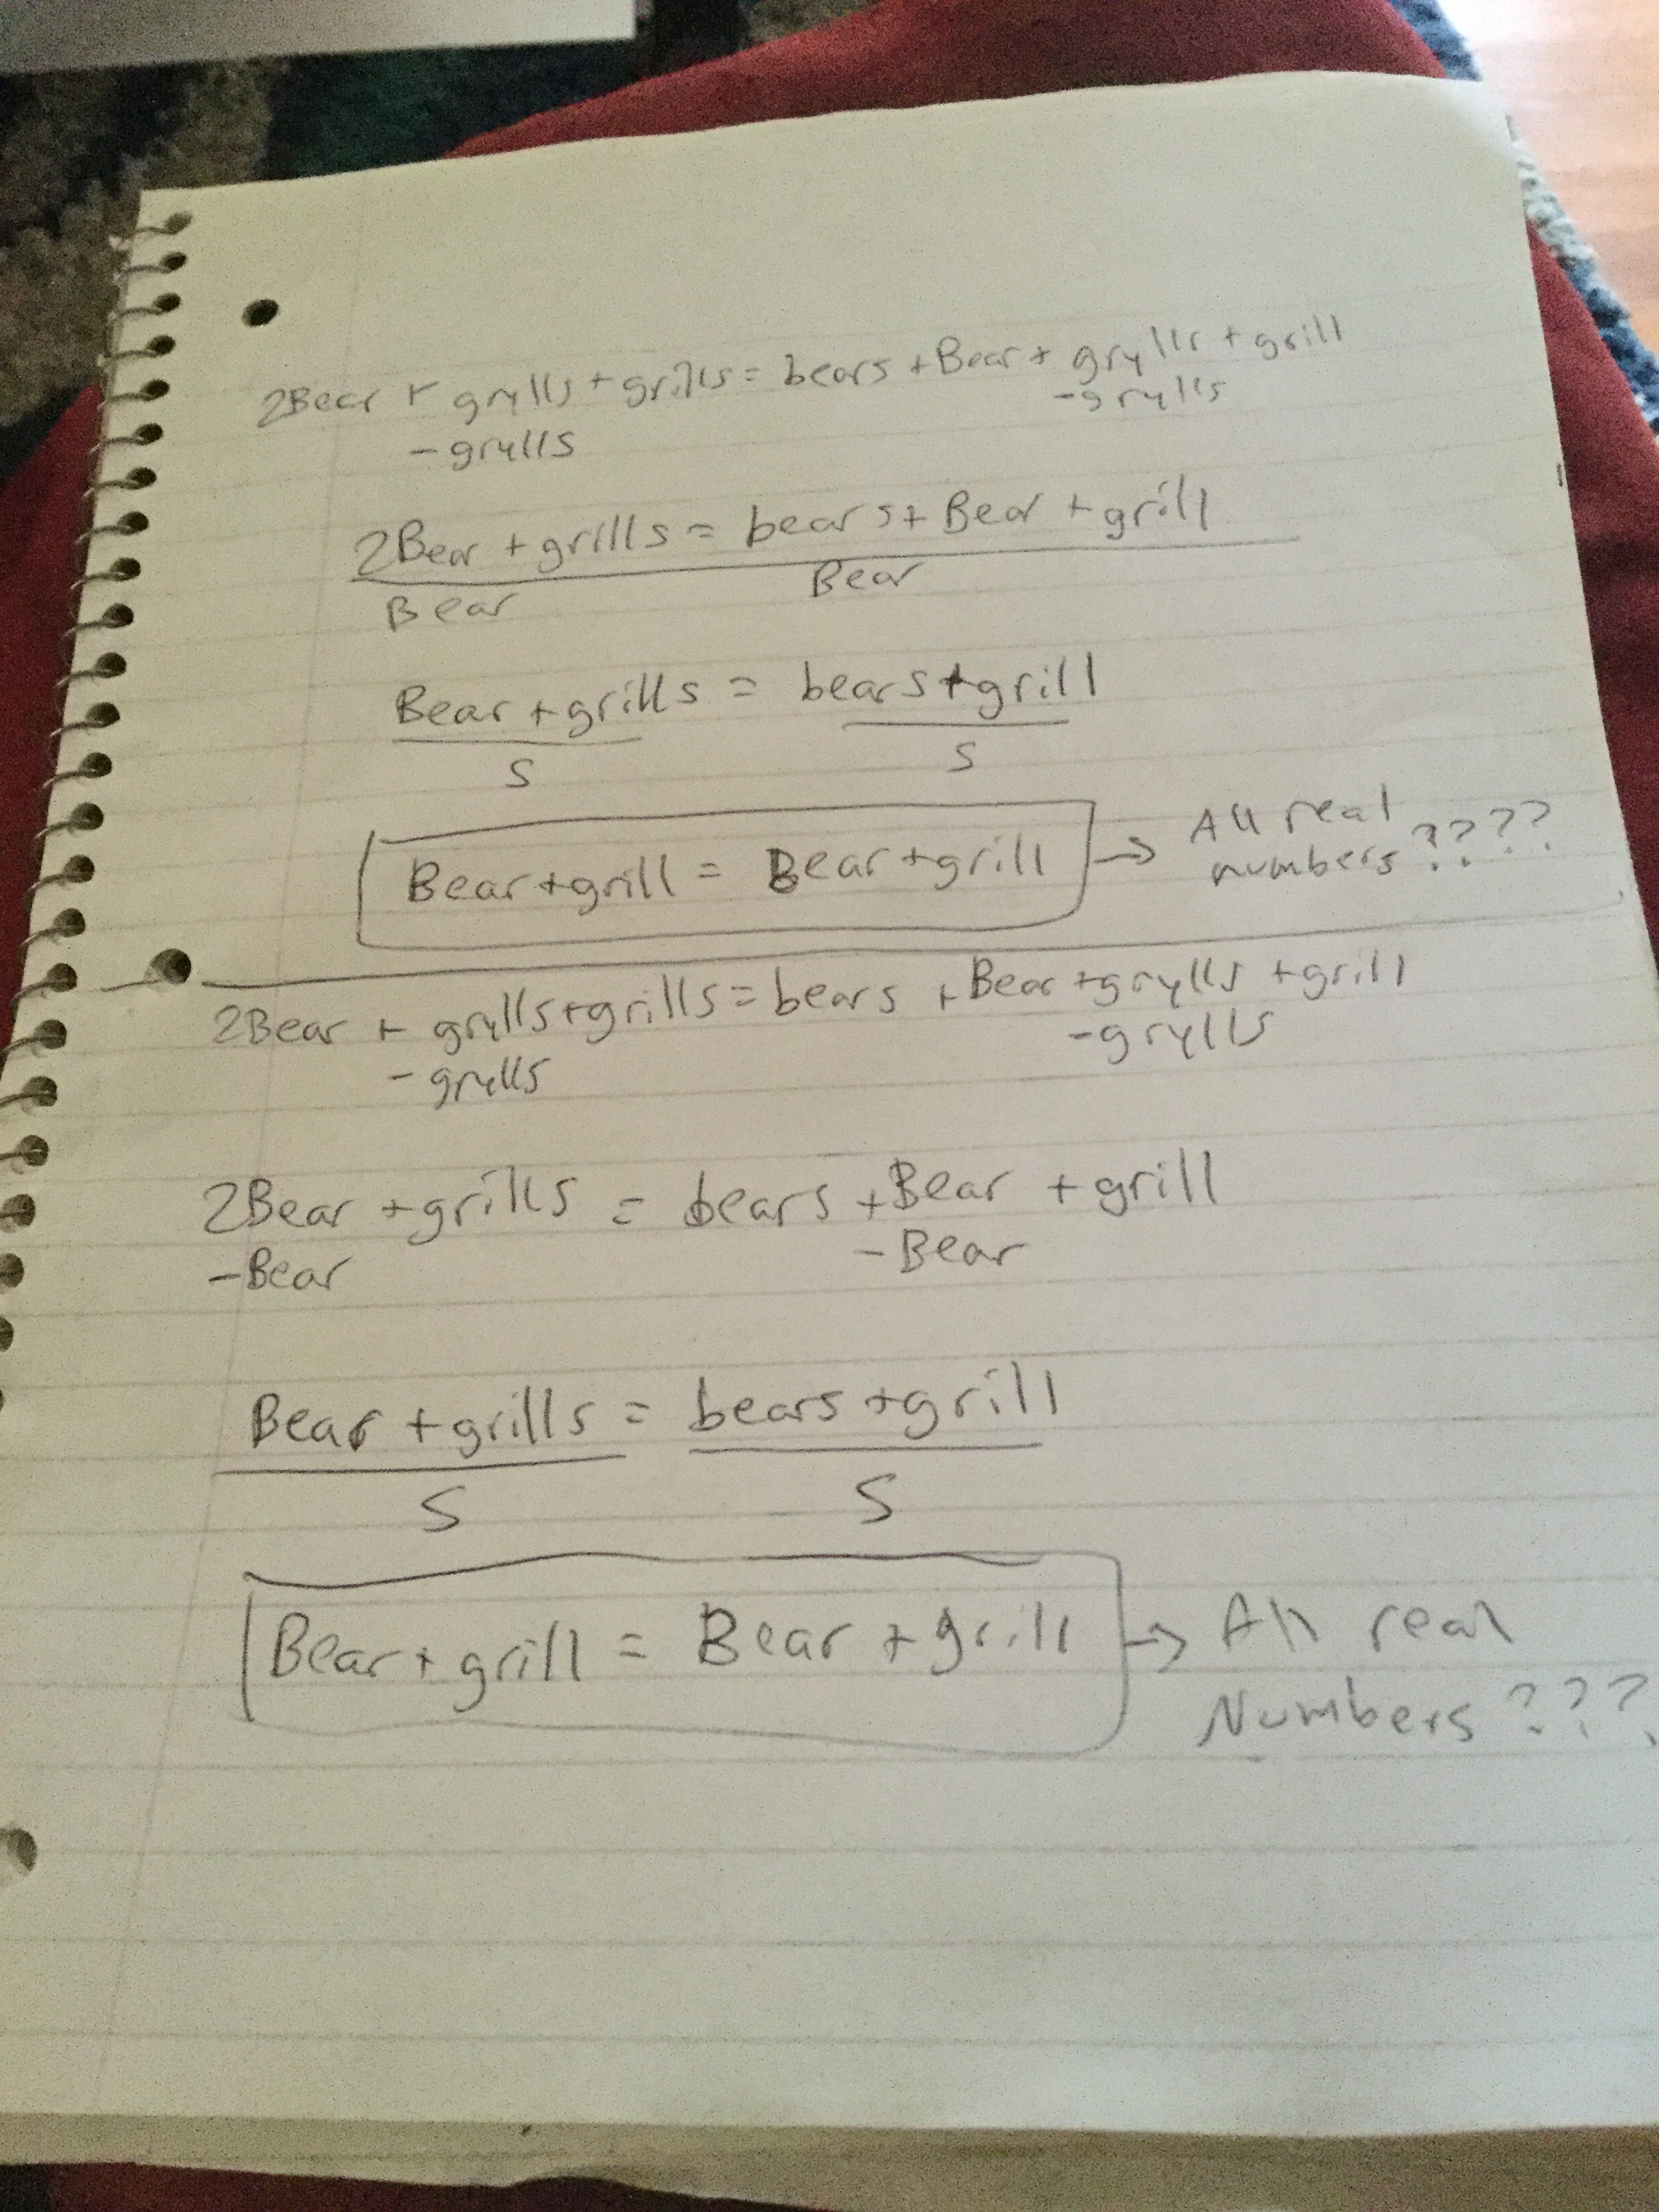 2Bear + grylls + grills = bears + Bear + grylls + grill
- grylls - grylls
2Bear + grills = bears + Bear + grill
Bear Bear
Bear + grills = bears + grill
S S
Bear + grill = Bear + grill → All real
numbers ????
2Bear + grylls + grills = bears + Bear + grylls + grill
- grylls - grylls
2Bear + grills = bears + Bear + grill
- Bear - Bear
Bear + grills = bears + grill
S S
Bear + grill = Bear + grill → All real
Numbers ???